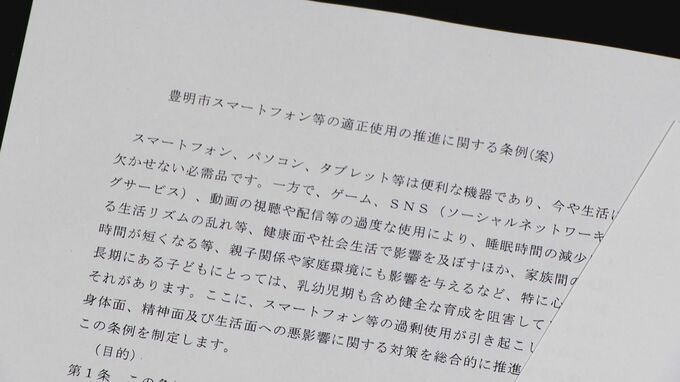 豊明市スマートフォン等の適正使用の推進に関する条例(案)
スマートフォン、パソコン、タブレット等は便利な機器であり、今や生活に
欠かせない必需品です。一方で、ゲーム、SNS(ソーシャルネットワーキ
グサービス)、動画の視聴や配信等の過度な使用により、睡眠時間の減少
る生活リズムの乱れ等、健康面や社会生活で影響を及ぼすほか、家族間の
時間が短くなる等、親子関係や家庭環境にも影響を与えるなど、特に心
長期にある子どもにとっては、乳幼児期も含め健全な育成を阻害して
それがあります。ここに、スマートフォン等の過剰使用が引き起こし
身体面、精神面及び生活面への悪影響に関する対策を総合的に推進
この条例を制定します。
(目的)
第1条 この条